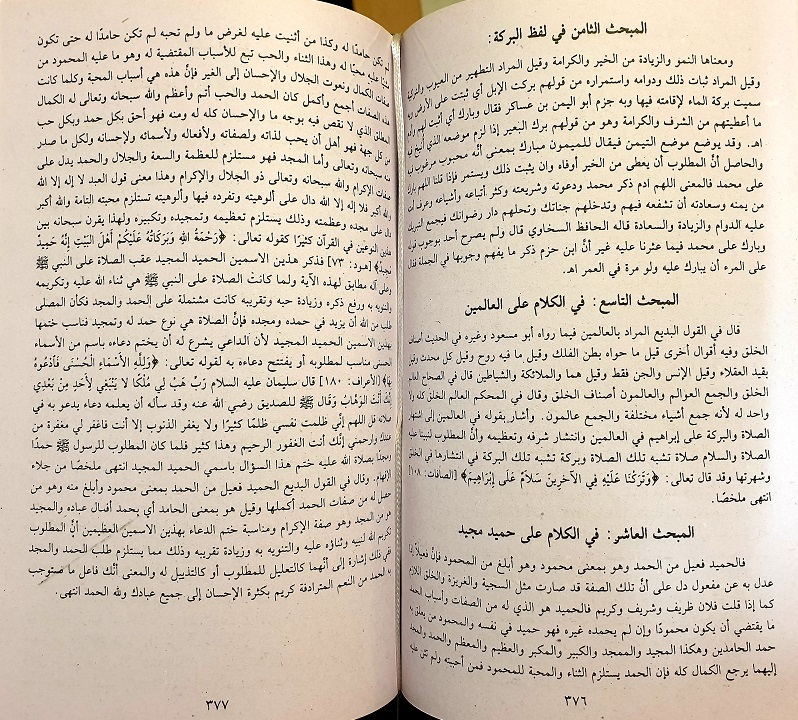 المبحث الثامن في لفظ البركة:
ومعناها النمو والزيادة من الخير والكرامة وقيل المراد التطهير من العيوب والتزكية
وقيل المراد ثبات ذلك ودوامه واستمراره من قولهم بركت الإبل أي ثبتت على الأرض وبه
سميت بركة الماء لإقامته فيها وبه جزم أبو اليمن بن عساكر فقال وبارك أي أثبت لهم وأدم
ما أعطيتهم من الشرف والكرامة وهو من قولهم برك البعير إذا لزم موضعه الذي أنيخ فيه
اهـ. وقد يوضع موضع التيمن فيقال للميمون مبارك بمعنى أنّه محبوب مرغوب فيه
والحاصل أنّ المطلوب أن يعطى من الخير أوفاه وان يثبت ذلك ويستمر فإذا قلنا اللهم بارك
على محمد فالمعنى اللهم ادم ذكر محمد ودعوته وشريعته وكثر أتباعه وأشياعه وعرف أمته
من يمنه وسعادته أن تشفعه فيهم وتدخلهم جناتك وتحلهم دار رضوانك فيجمع التبريك
عليه الدوام والزيادة والسعادة قاله الحافظ السخاوي قال ولم يصرح أحد بوجوب قوله
وبارك على محمد فيما عثرنا عليه غير أنّ ابن حزم ذكر ما يفهم وجوبها في الجملة فقال
على المرء أن يبارك عليه ولو مرة في العمر اهـ.
المبحث التاسع: في الكلام على العالمين
قال في القول البديع المراد بالعالمين فيما رواه أبو مسعود وغيره في الحديث أصناف
الخلق وفيه أقوال أخرى قيل ما حواه بطن الفلك وقيل ما فيه روح وقيل كل محدث وقيل
بقيد العقلاء وقيل الإنس والجن فقط وقيل هما والملائكة والشياطين قال في الصحاح العالم
الخلق والجمع العوالم والعالمون أصناف الخلق وقال في المحكم العالم الخلق كله ولا
واحد له لأنه جمع أشياء مختلفة والجمع عالمون. وأشار بقوله في العالمين إلى اشتهار
الصلاة والبركة على إبراهيم في العالمين وانتشار شرفه وتعظيمه وأنّ المطلوب لنبينا عليه
الصلاة والسلام صلاة تشبه تلك الصلاة وبركة تشبه تلك البركة في انتشارها في الخلق
وشهرتها وقد قال تعالى: ﴿وَتَرَكْنَا عَلَيْهِ فِي الآخِرِينَ سَلاَمٌ عَلَى إِبْرَاهِيمَ﴾ [الصافات: ١٠٨]
انتهى ملخصًا.
المبحث العاشر: في الكلام على حميد مجيد
فالحميد فعيل من الحمد وهو بمعنى محمود وهو أبلغ من المحمود فإنّ فعيلاً إذا
عدل به عن مفعول دل على أنّ تلك الصفة قد صارت مثل السجية والغريزة والخلق اللازم
كما إذا قلت فلان ظريف وشريف وكريم فالحميد هو الذي له من الصفات وأسباب الحمد
ما يقتضي أن يكون محمودًا وإن لم يحمده غيره فهو حميد في نفسه والمحمود من يعلق به
حمد الحامدين وهكذا المجيد والممجد والكبير والمكبر والعظيم والمعظم والحمد والمجد
إليهما يرجع الكمال كله فإن الحمد يستلزم الثناء والمحبة للمحمود فمن أحببته ولم تثن عليه
٣٧٦
لم تكن حامدًا له وكذا من أثنيت عليه لغرض ما ولم تحبه لم تكن حامدًا له حتى تكون
مثنيًا عليه محبًا له وهذا الثناء والحب تبع للأسباب المقتضية له وهو ما عليه المحمود من
صفات الكمال ونعوت الجلال والإحسان إلى الغير فإنّ هذه هي أسباب المحبة وكلما كانت
هذه الصفات أجمع وأكمل كان الحمد والحب أتم وأعظم والله سبحانه وتعالى له الكمال
المطلق الذي لا نقص فيه بوجه ما والإحسان كله له ومنه فهو أحق بكل حمد وبكل حب
من كل جهة فهو أهل أن يحب لذاته ولصفاته ولأفعاله ولأسمائه ولإحسانه ولكل ما صدر
منه سبحانه وتعالى وأما المجد فهو مستلزم للعظمة والسعة والجلال والحمد يدل على
صفات الإكرام والله سبحانه وتعالى ذو الجلال والإكرام وهذا معنى قول العبد لا إله إلا الله
والله أكبر فلا إله إلا الله دال على ألوهيته وتفرده فيها وألوهيته تستلزم محبته التامة والله أكبر
دال على مجده وعظمته وذلك يستلزم تعظيمه وتمجيده وتكبيره ولهذا يقرن سبحانه بين
هذين النوعين في القرآن كثيرًا كقوله تعالى: ﴿وَرَحْمَةُ اللهِ وَبَرَكَاتُهُ عَلَيْكُمْ أَهْلَ البَيْتِ إِنَّهُ حَمِيدٌ
مَجِيدٌ﴾ [هود: ٧٣] فذكر هذين الاسمين الحميد المجيد عقب الصلاة على النبي ﷺ
وعلى آله مطابق لهذه الآية ولما كانت الصلاة على النبي ﷺ هي ثناء الله عليه وتكريمه
والتنويه به ورفع ذكره وزيادة حبه وتقريبه كانت مشتملة على الحمد والمجد فكأن المصلى
طلب من الله أن يزيد في حمده ومجده فإنّ الصلاة هي نوع حمد له وتمجيد فناسب ختمها
بهذين الاسمين الحميد المجيد لأن الداعي يشرع له أن يختم دعاءه باسم من الأسماء
الحسنى مناسب لمطلوبه أو يفتتح دعاءه به لقوله تعالى: ﴿وَلِلّهِ الأَسْمَاءُ الْحُسْنَى فَادْعُوهُ
بِهَا﴾ [الأعراف: ١٨٠] قال سليمان عليه السلام رَبِّ هَبْ لِي مُلْكًا لاَ يَنْبَغِي لأَحَدٍ مِنْ بَعْدِي
إِنَّكَ أَنْتَ الْوَهَّابُ وَقَال ﷺ للصديق رضي الله عنه وقد سأله أن يعلمه دعاء يدعو به في
صلاته قل اللهم إنّي ظلمت نفسي ظلمًا كثيرًا ولا يغفر الذنوب إلا أنت فاغفر لي مغفرة من
عندك وارحمني إنّك أنت الغفور الرحيم وهذا كثير فلما كان المطلوب للرسول ﷺ حمدًا
ومجدًا بصلاة الله عليه ختم هذا السؤال باسمي الحميد المجيد انتهى ملخصًا من جلاء
الإفهام. وقال في القول البديع الحميد فعيل من الحمد بمعنى محمود وأبلغ منه وهو من
حصل له من صفات الحمد أكملها وقيل هو بمعنى الحامد أي يحمد أفعال عباده والمجيد
من المجد وهو صفة الإكرام ومناسبة ختم الدعاء بهذين الاسمين العظيمين أنّ المطلوب
تكريم الله لنبيه وثناؤه عليه والتنويه به وزيادة تقريبه وذلك مما يستلزم طلب الحمد والمجد
ففي ذلك إشارة إلى أنّهما كالتعليل للمطلوب أو كالتذييل له والمعنى أنّك فاعل ما تستوجب
به الحمد من النعم المترادفة كريم بكثرة الإحسان إلى جميع عبادك ولله الحمد انتهى.
٣٧٧